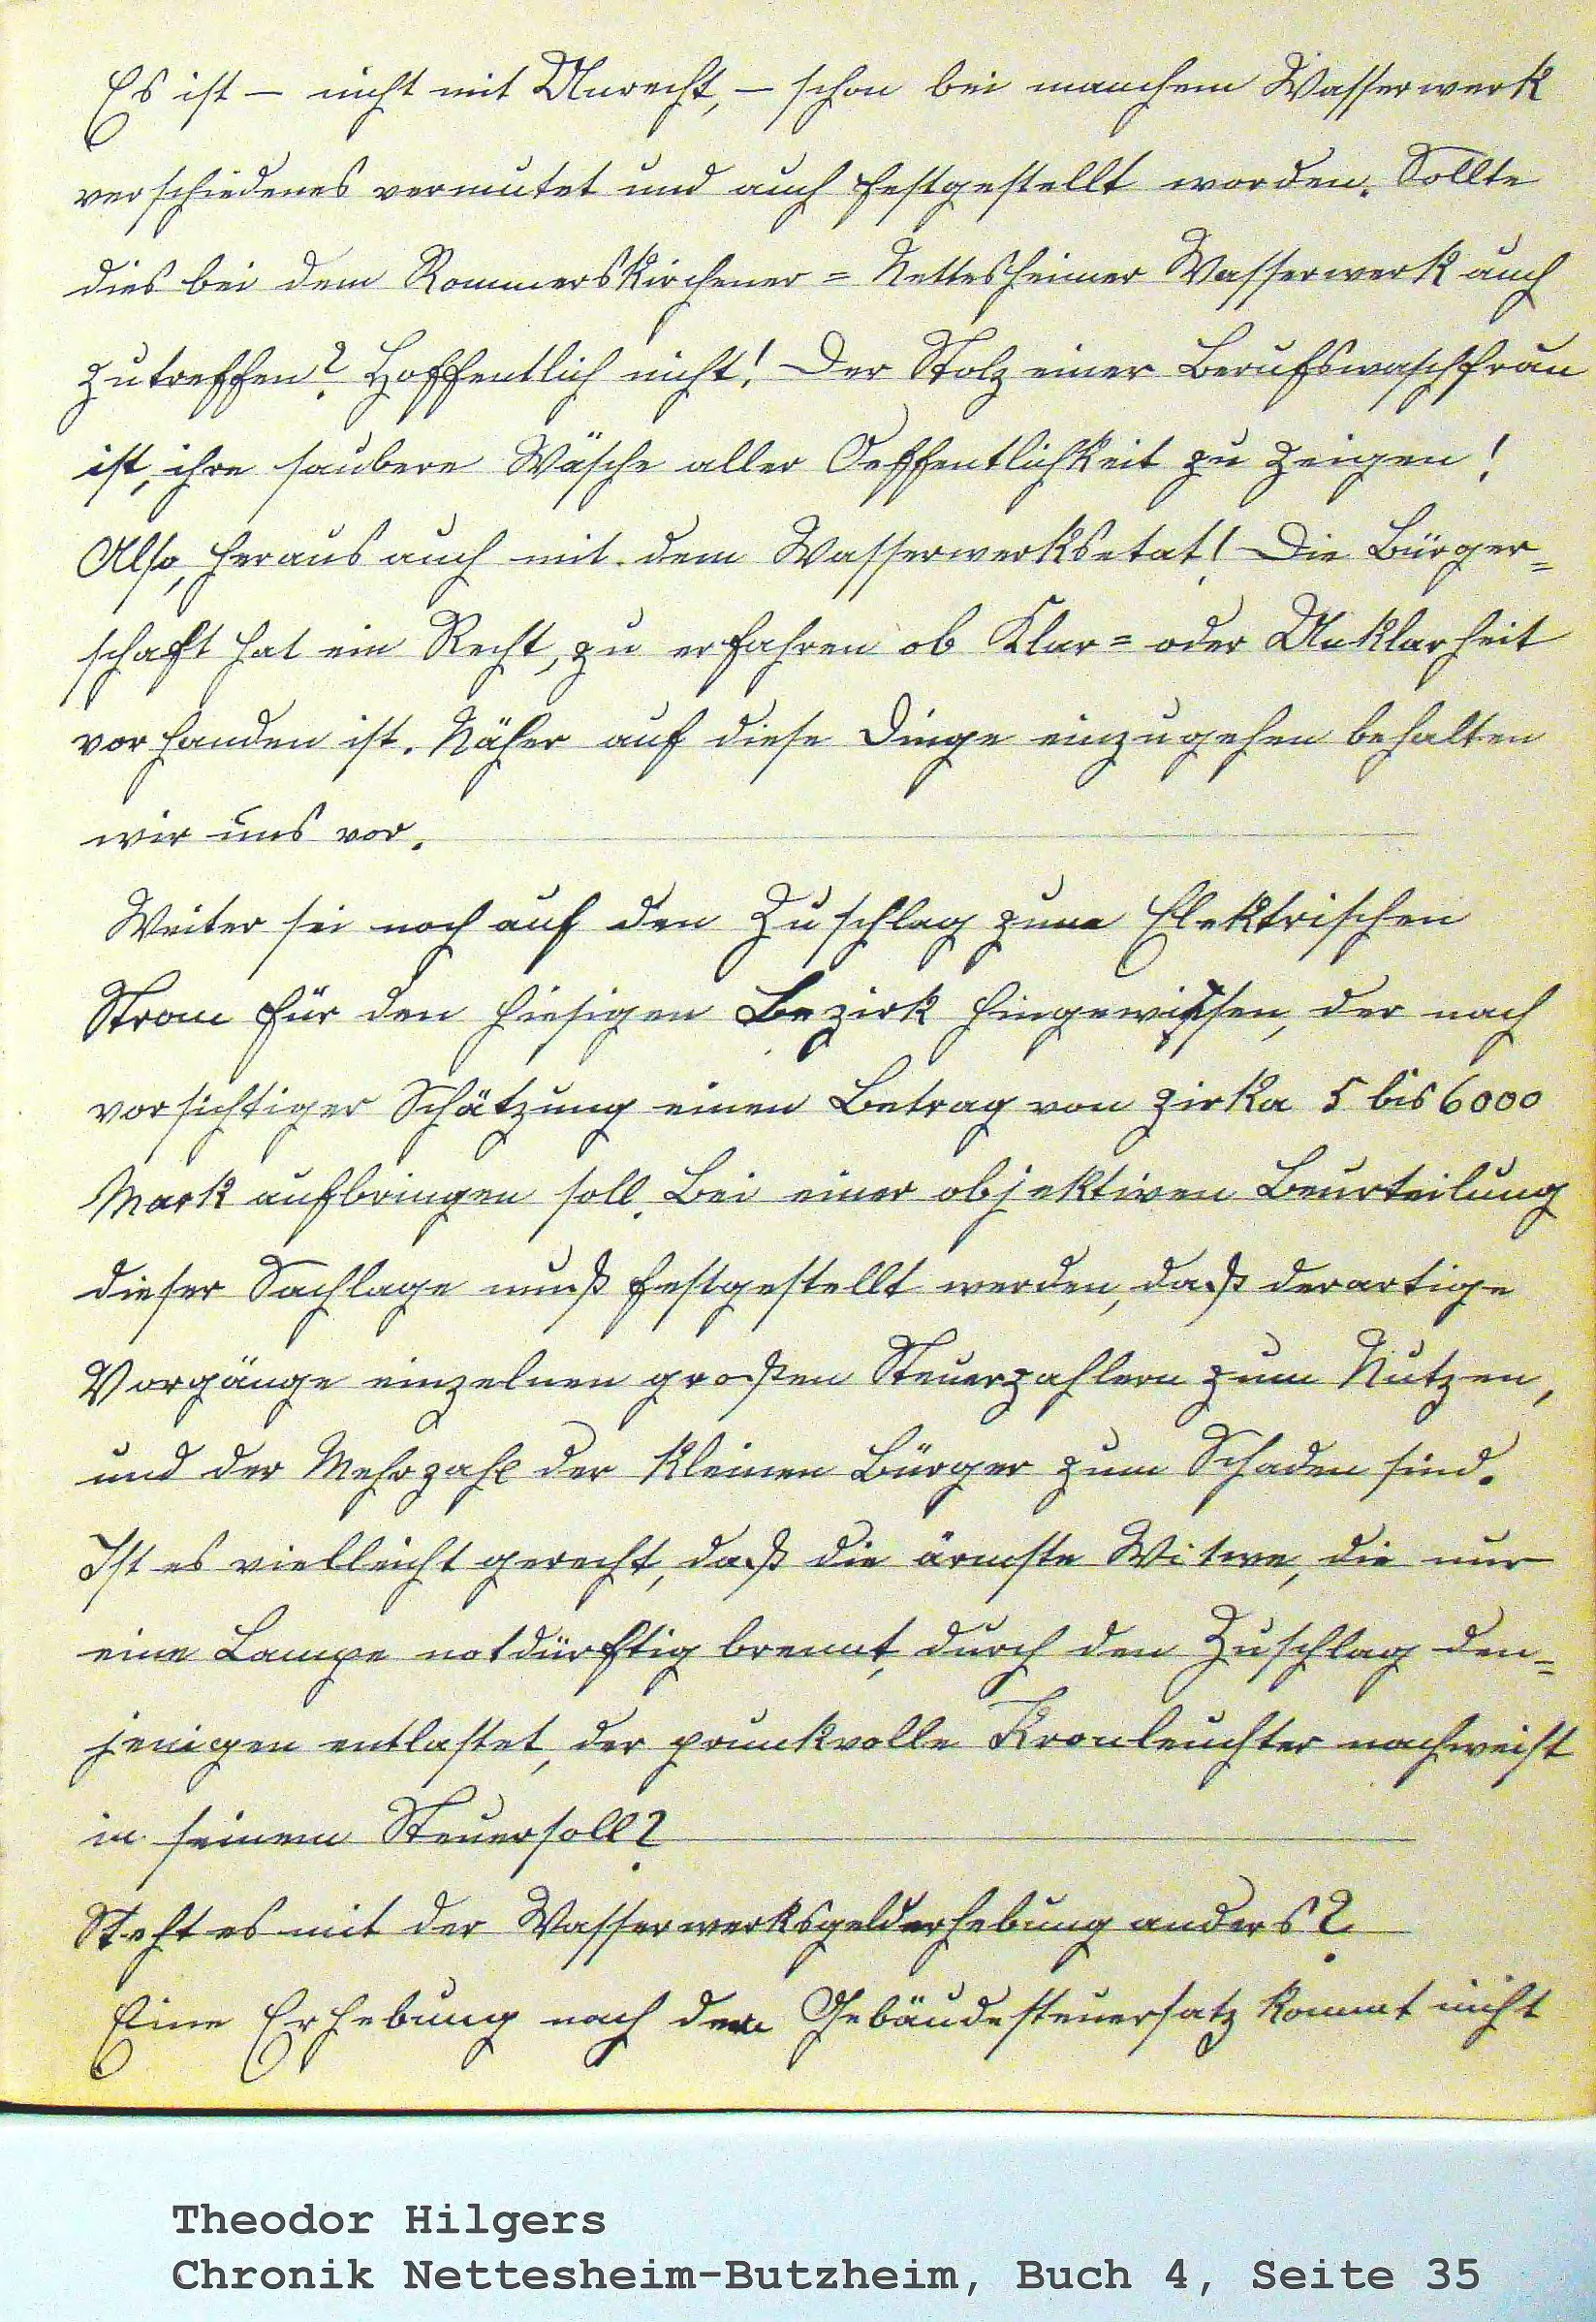 Es ist – nicht mit Unrecht, – schon bei manchem Wasserwerk
verschiedenes vermutet und auch festgestellt worden. Sollte
dies bei dem Rommerskirchener = Nettesheimer Wasserwerk auch
zutreffen? Hoffentlich nicht! Der Stolz einer Berufswaschfrau
ist, ihre saubere Wäsche aller Oeffentlichkeit zu zeigen!
Also, heraus auch mit dem Wasserwerksetat! Die Bürger=
schaft hat ein Recht, zu erfahren ob Klar= oder Unklarheit
vorhanden ist. Näher auf diese Dinge einzugehen behalten
wir uns vor.
Weiter sei noch auf den Zuschlag zum Elektrischen
Strom für den hiesigen Bezirk hingewissen, der nach
vorsichtiger Schätzung einen Betrag von zirka 5 bis 6000
Mark aufbringen soll. Bei einer objektiven Beurteilung
dieser Sachlage muß festgestellt werden, daß derartige
Vorgänge einzelnen großen Steuerzahlern zum Nutzen,
und der Mehrzahl der kleinen Bürger zum Schaden sind.
Ist es vielleicht gerecht, daß die ärmste Witwe, die nur
eine Lampe notdürftig brennt, durch den Zuschlag den=
jenigen entlastet, der prunkvolle Kronleuchter nachweist
in seinem Steuersoll?
Steht es mit der Wasserwerksgelderhebung anders?
Eine Erhebung nach dem Gebäudesteuersatz kommt nicht
Theodor Hilgers
Chronik Nettesheim-Butzheim, Buch 4, Seite 35